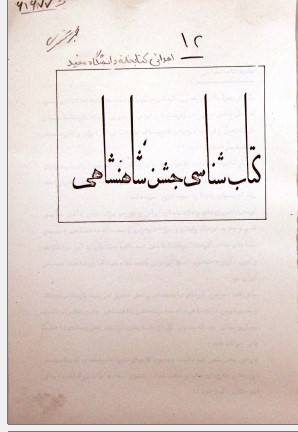 ۱۲
اهدائی کتابخانه دانشگاه مفید
کتاب شناسی جشن شاهنشاهی